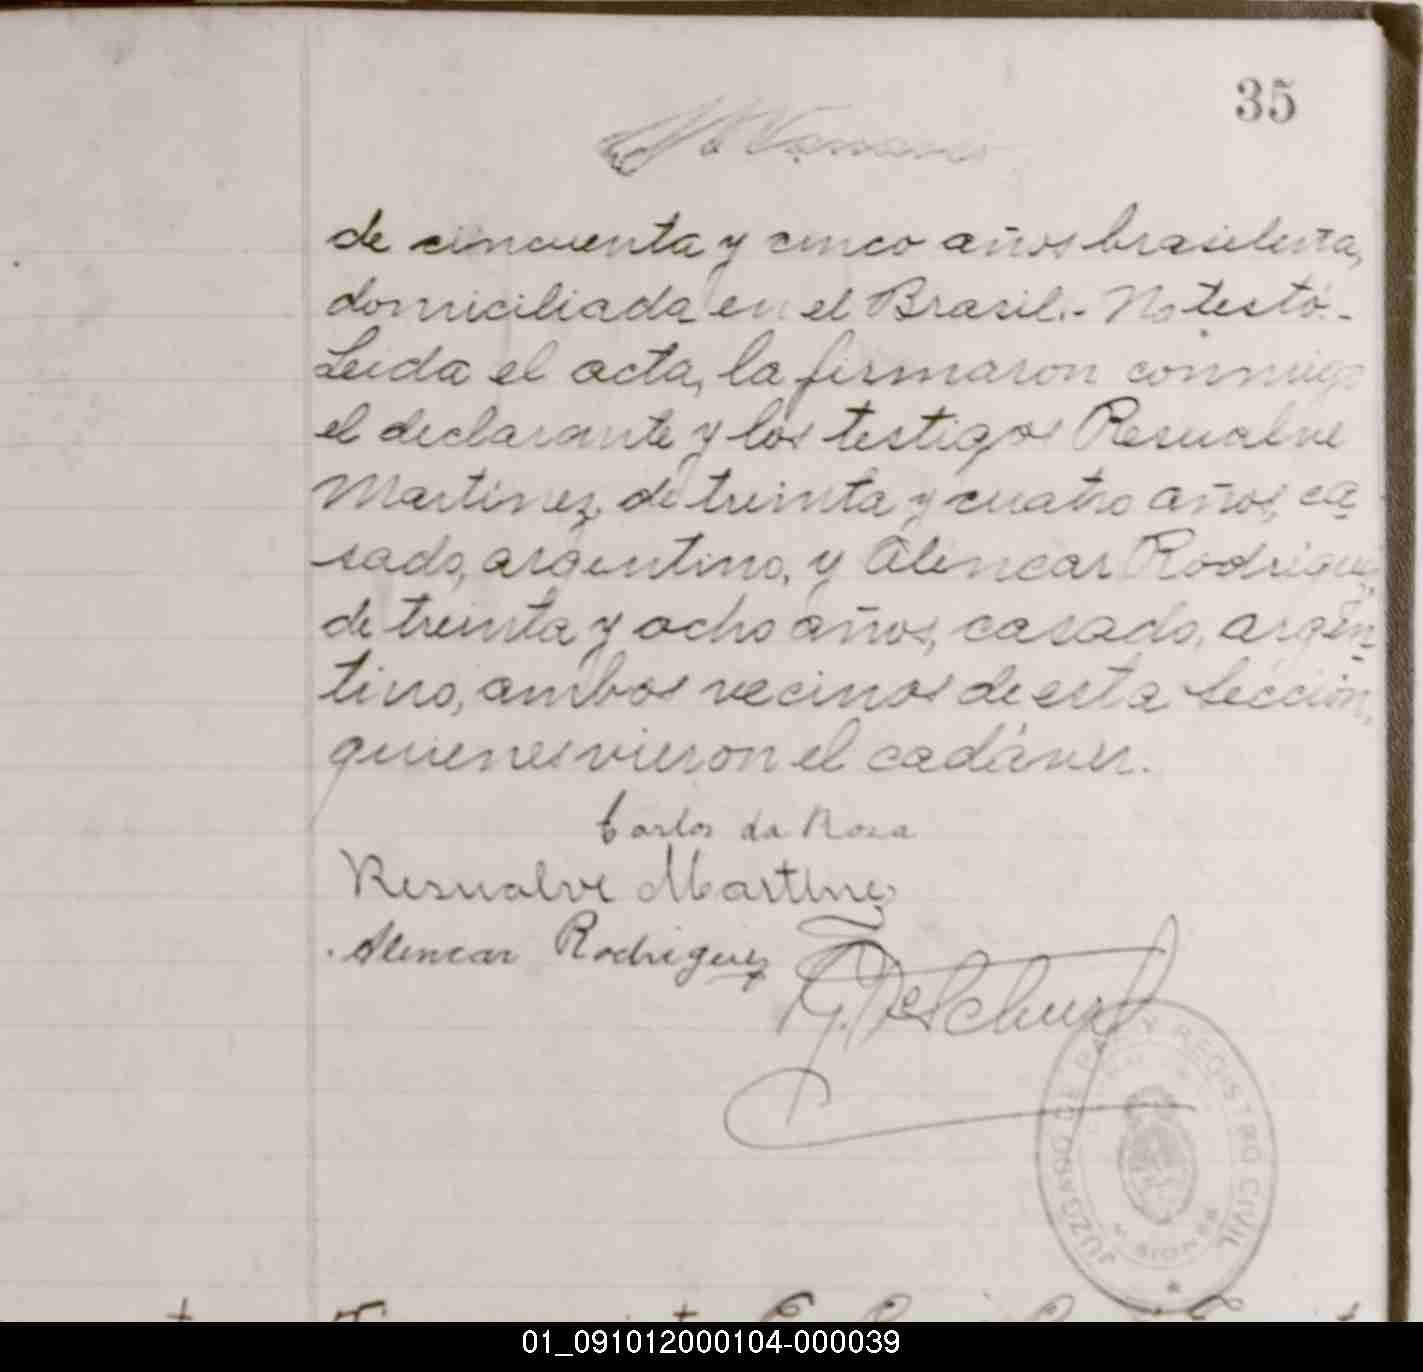 35
de cincuenta y cinco años brasilera,
domiciliada en el Brasil.- No testó.-
Leida el acta, la firmaron conmigo
el declarante y los testigos Resualve
Martinez, de treinta y cuatro años, ca-
sado, argentino, y Alencar Rodriguez,
de treinta y ocho años, casado, argen-
tino, ambos vecinos de esta sección,
quienes vieron el cadáver.
Carlos da Rosa
Resualve Martinez
Alencar Rodriguez
JUZGADO DE PAZ Y REGISTRO CIVIL
MISIONES
01_091012000104-000039